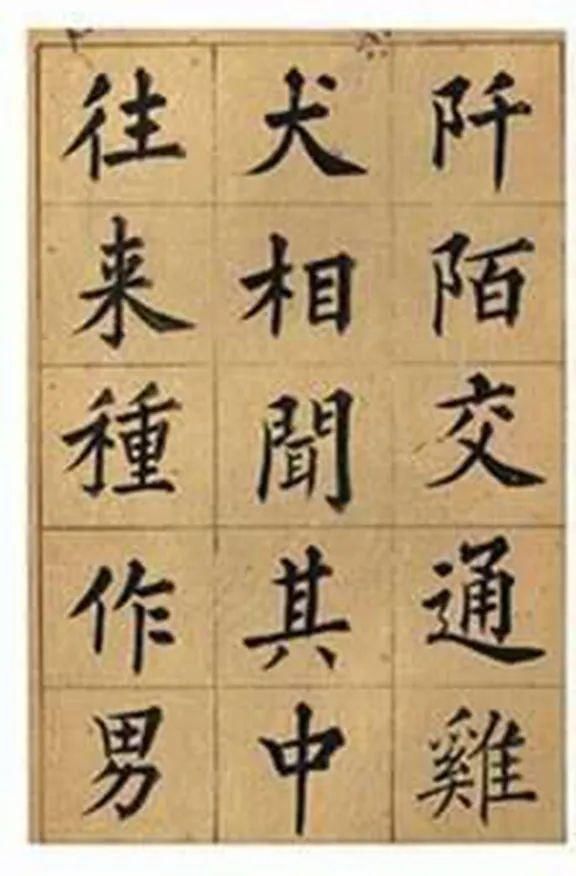 阡陌交通雞
犬相聞其中
往来種作男